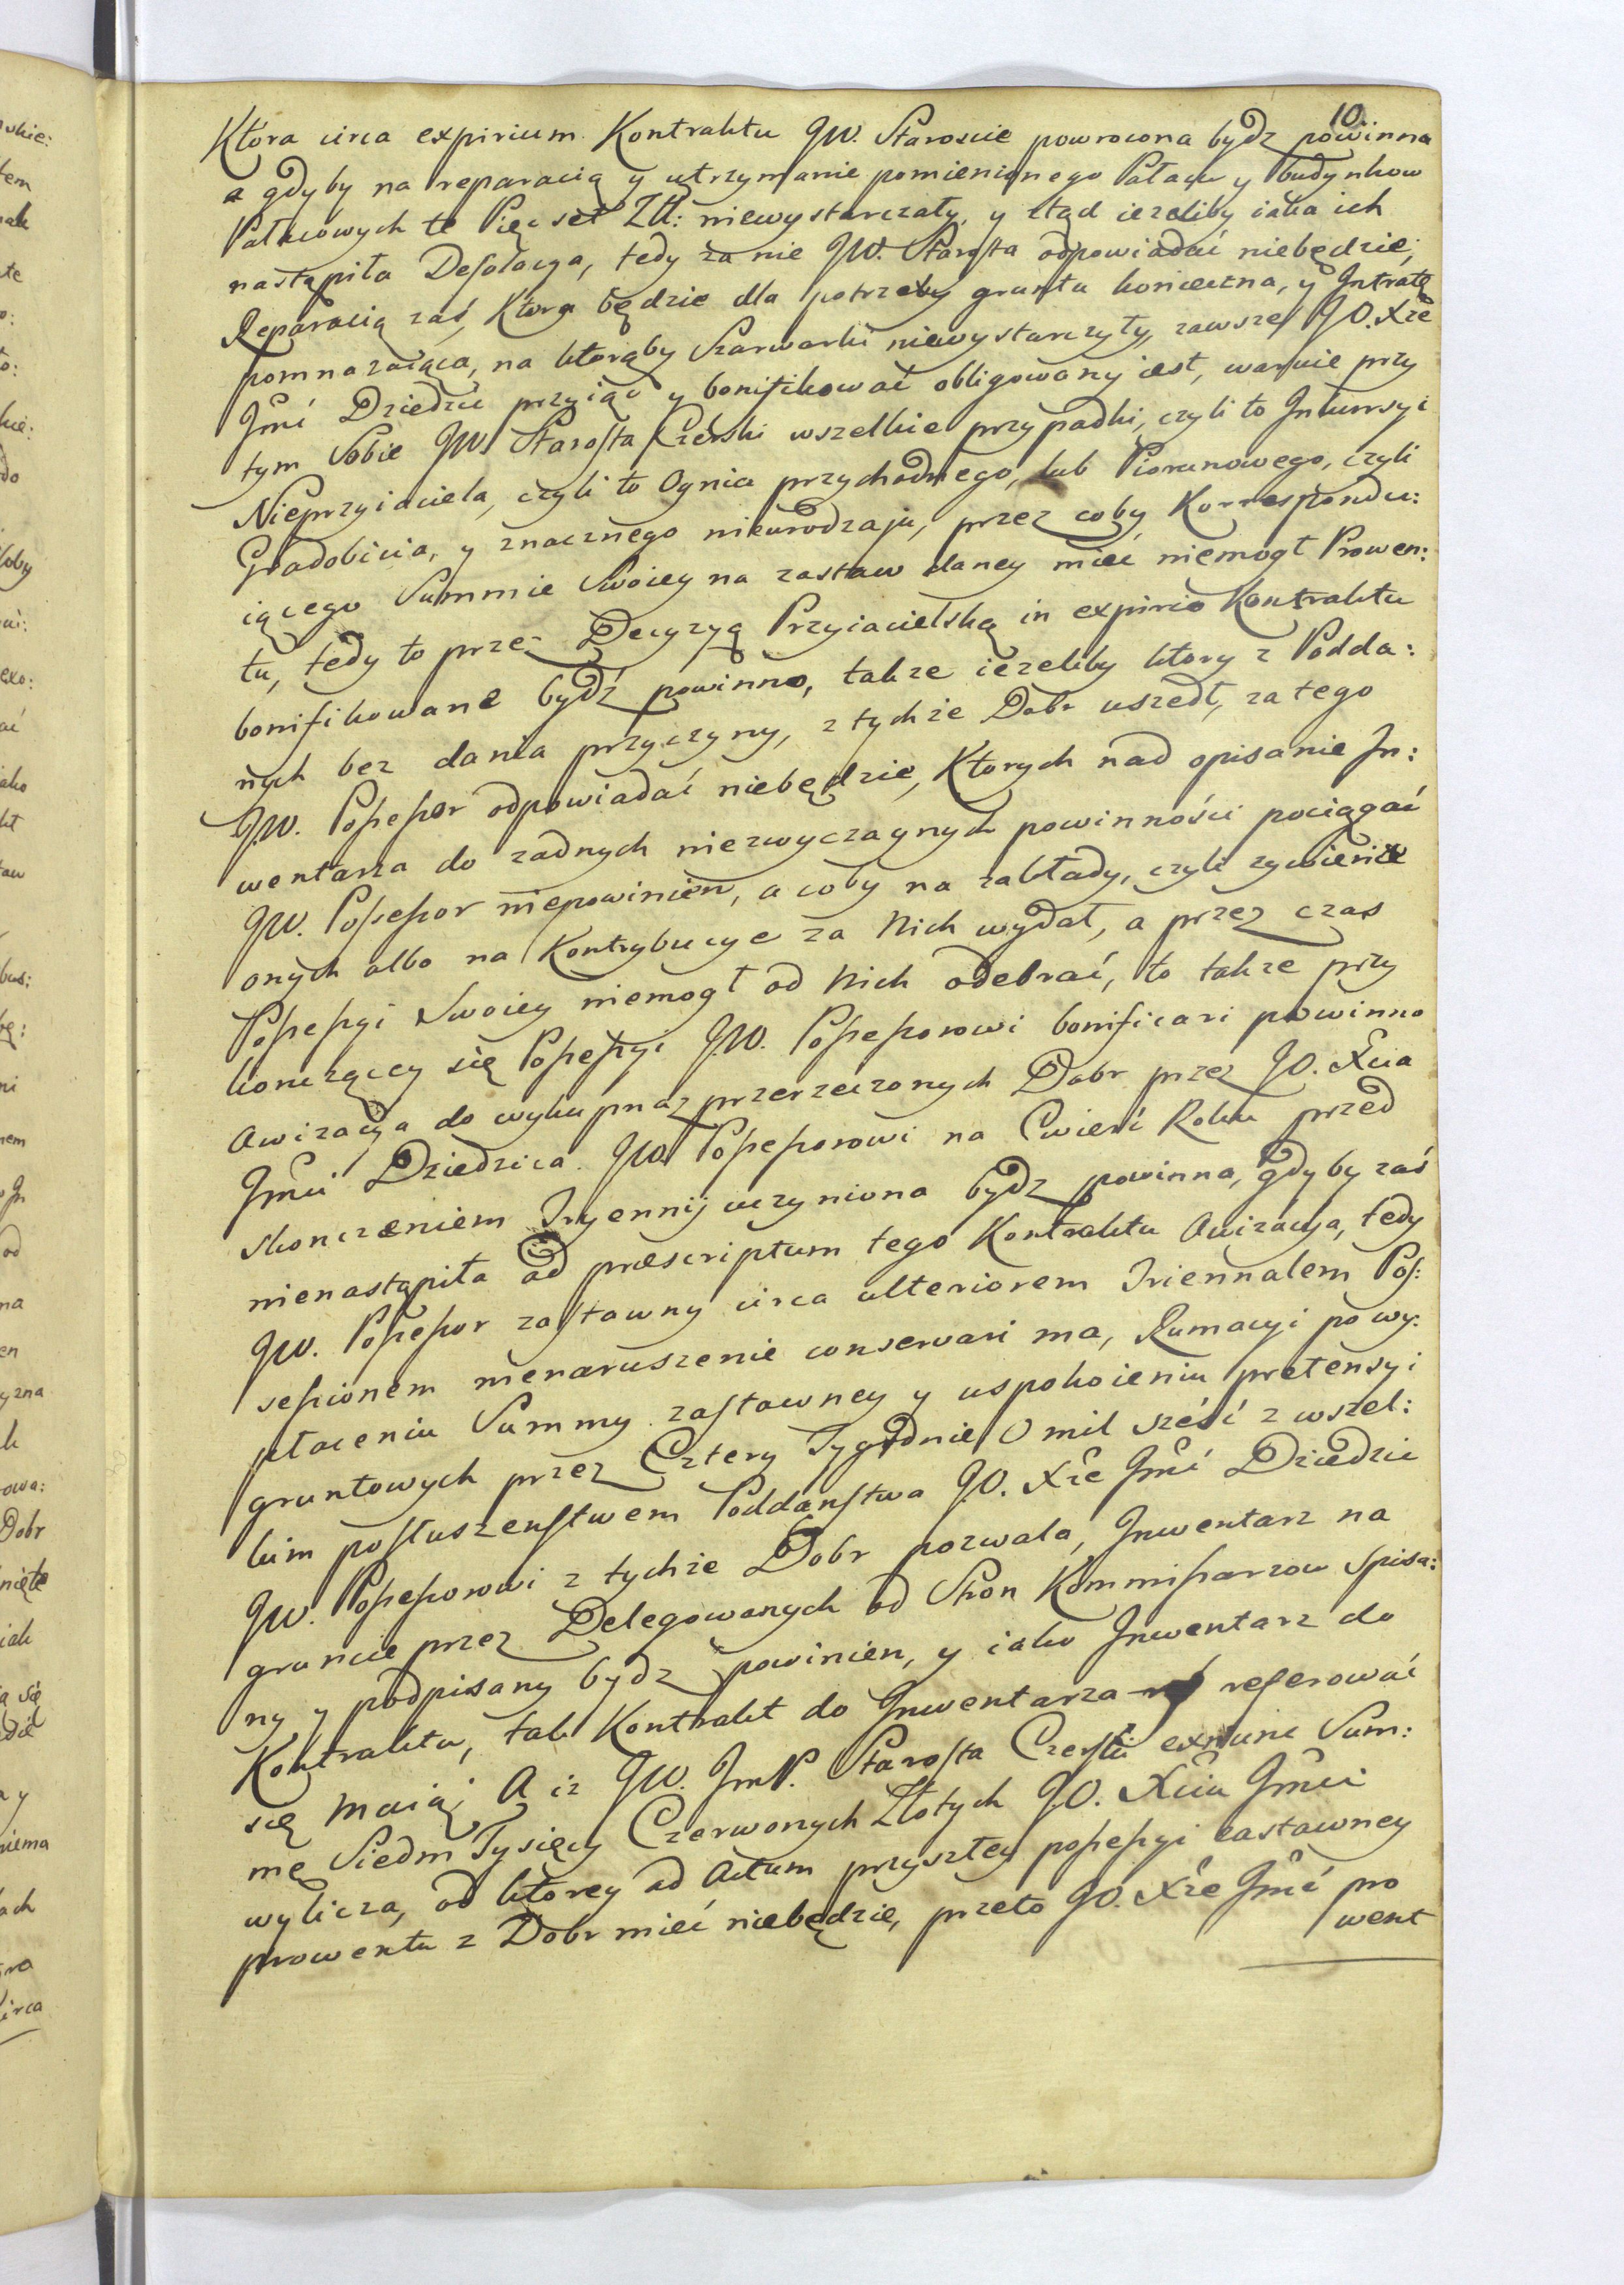 10.
Ktora circa expirium Kontraktu JW. Staroscie powrocona bydz powinna
a gdyby na reparacią y utrzymanie pomienionego Pałacu y budynkow
Pałacowych te Pięc set Złł: niewystarczały, y ztąd iezeliby iaka ich
nastąpiła Desolacya, tedy za nie JW. Starosta odpowiadać niebędzie;
Reparacią zaś, Ktora będzie dla potrzeby gruntu konieczna, y Intratę
pomnazaiąca, na ktorąby Szarwarki niewystarczyły, zawsze JO. Xże
Jmć Dziedzic przyiąć y bonifikować obligowany iest, waruie przy
tym Sobie JW. Starosta Czerski wszelkie przypadki, czyli to Inkursyi
Nieprzyiaciela, czyli to Ognia przychodnego, lub Piorunowego, czyli
Gradobicia, y znacznego nieurodzaju, przez coby Korrespondu:
iącego Summie Swoiey na zastaw daney mieć niemogł Prowen:
tu, tedy to przez Decyzyą Przyiacielską in expirio Kontraktu
bonifikowane bydź powinno, takze iezeliby ktory z Podda:
nych bez dania przyczyny, z tychze Dobr uszedł, za tego
JW. Possessor odpowiadać niebędzie, Ktorych nad opisanie In:
wentarza do zadnych niezwyczaynych powinności pociągać
JW. Possessor niepowinien, a coby na zakłady, czyli zywienie
onych albo na Kontrybucye za Nich wydał, a przez czas
Possessyi Swoiey niemogł od Nich odebrać, to takze przy
konczący się Possessyi JW. Possessorowi bonificari powinno
Awizacya do wykupna przerzeczonych Dobr przez JO. Xcia
Jmci Dziedzica JW. Possessorowi na Cwierć Roku przed
skonczeniem Tryennij uczyniona bydz powinna, gdyby zaś
nienastąpiła ad præscriptum tego Kontraktu Awizacya, tedy
JW. Possessor zastawny circa ulteriorem Triennalem Pos:
sessionem nienaruszenie conservari ma, Rumacyi po wy:
płaceniu Summy zastawney y uspokoieniu pretensyi
gruntowych przez Cztery Tygodnie O mil sześć z wszel:
kim posłuszenstwem Poddanstwa JO. Xże Jmć Dziedzic
JW. Possessorowi z tychze Dobr pozwala, Inwentarz na
gruncie przez Delegowanych od Stron Kommissarzow spisa:
ny y podpisany bydz powinien, y iako Inwentarz do
Kontraktu, tak Kontrakt do Inwentarza referować
się maią; A iz JW. JmP. Starosta Czerski exnunc Sum:
mę Siedm Tysięcy Czerwonych Złotych JO. Xciu Jmci
wylicza, od ktorey ad Actum przyszłey possessyi zastawney
prowentu z Dobr mieć niebędzie, przeto JO. Xże Jmć pro
went